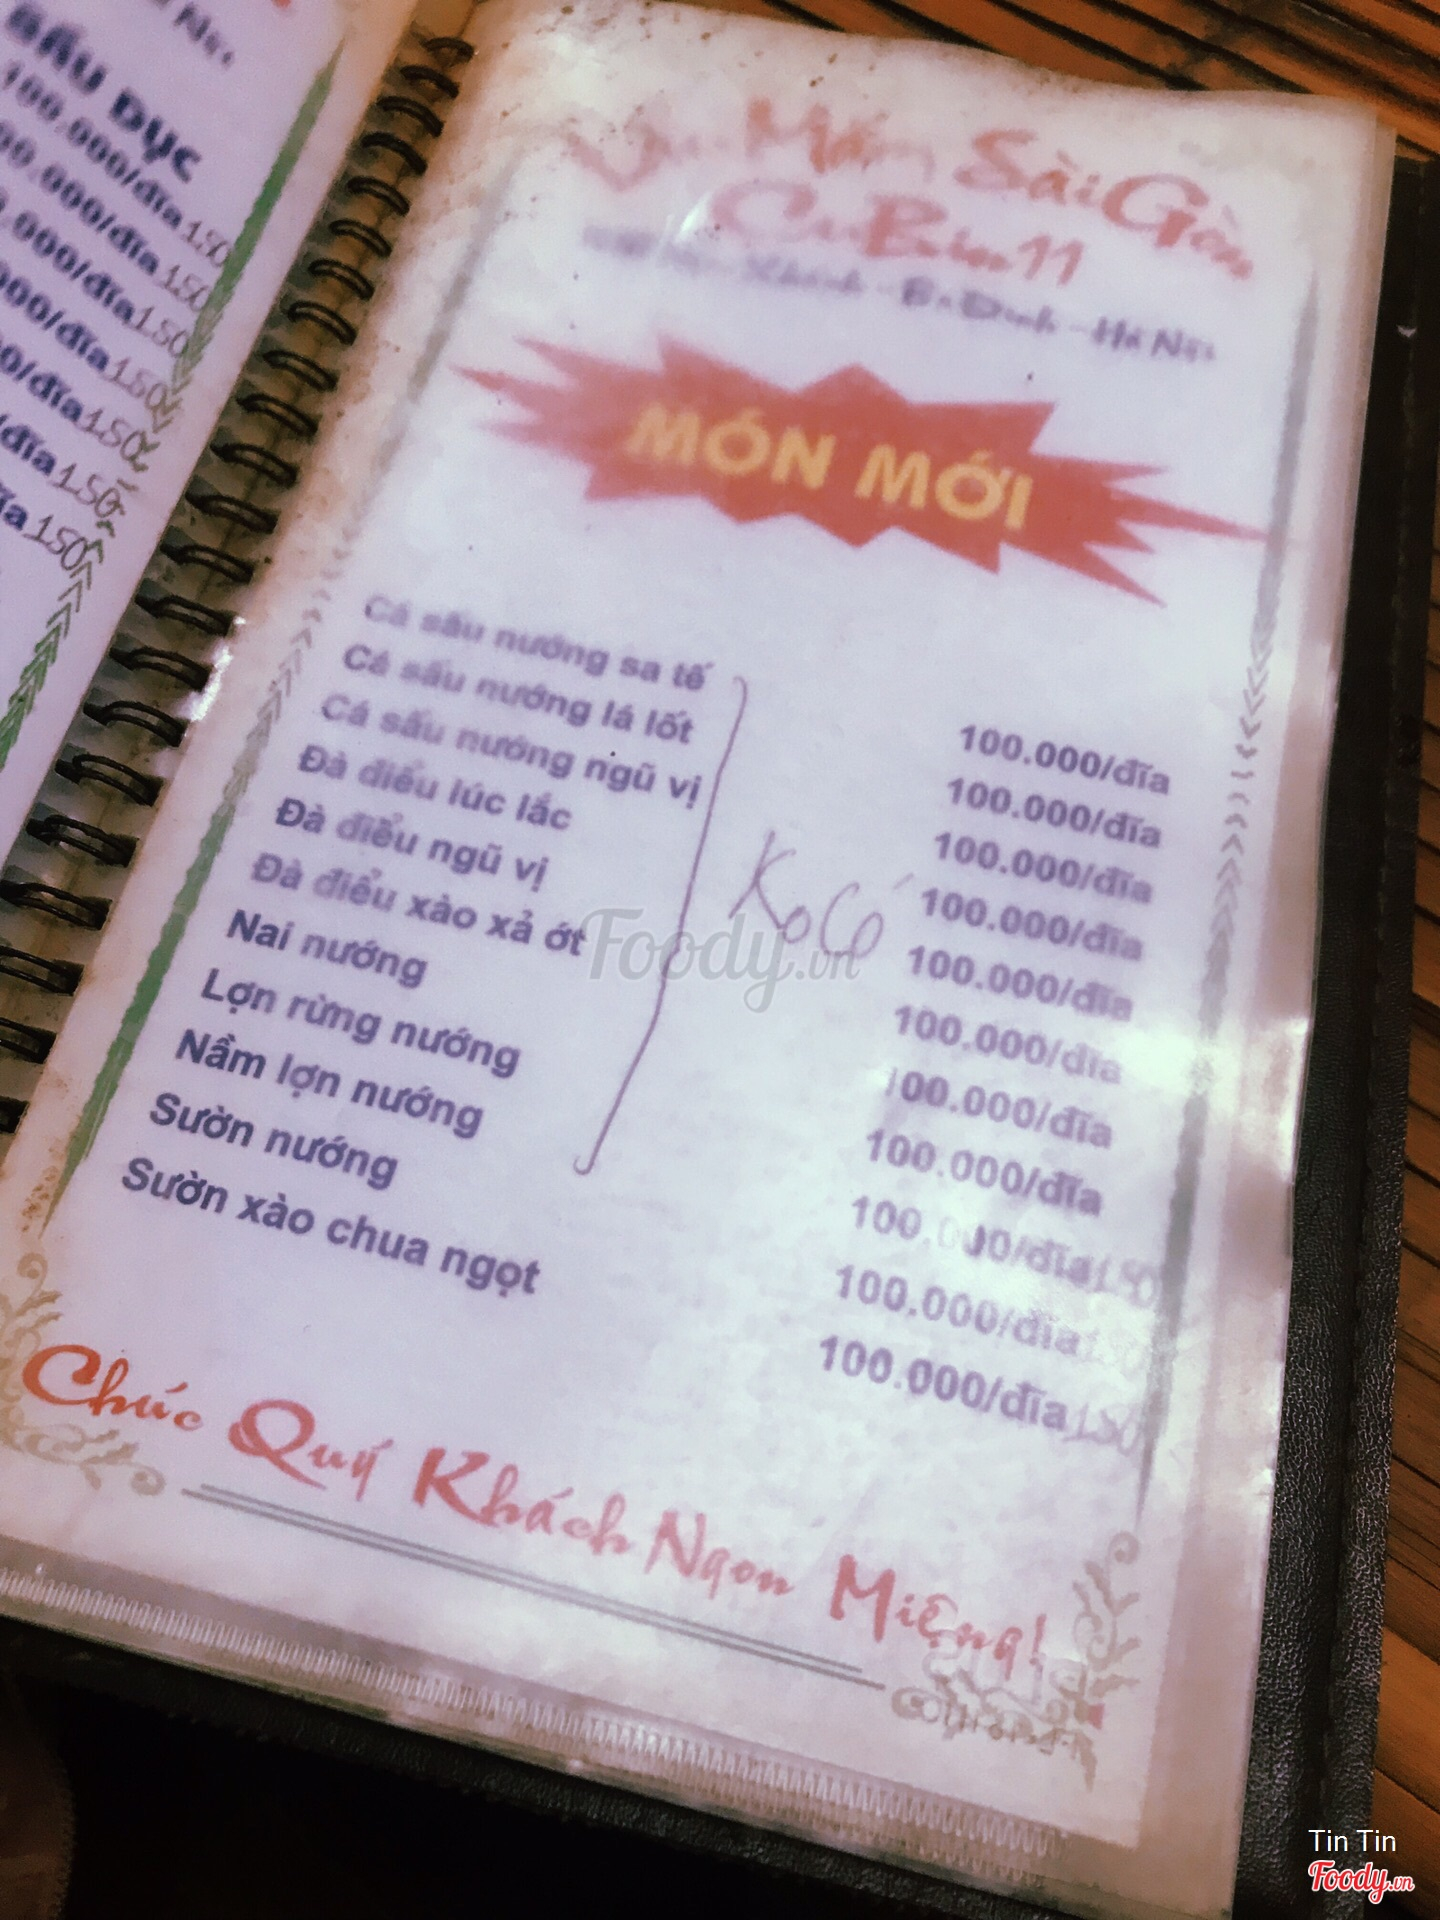 BẦU DỤC
100.000/đĩa 150
00.000/đĩa 150
.000/đĩa 150
000/đĩa 150
0/đĩa 150
/đĩa 150
ĩa 150
Mắm Sài Gòn
11
MÓN MỚI
Cá sấu nướng sa tế 100.000/đĩa
Cá sấu nướng lá lốt 100.000/đĩa
Cá sấu nướng ngũ vị 100.000/đĩa
Đà điểu lúc lắc 100.000/đĩa
Đà điểu ngũ vị 100.000/đĩa
Đà điểu xào xả ớt 100.000/đĩa
Nai nướng 100.000/đĩa
Lợn rừng nướng 100.000/đĩa
Nầm lợn nướng 100.000/đĩa 150
Sườn nướng 100.000/đĩa 150
Sườn xào chua ngọt 100.000/đĩa 150
Ko Có
Chúc Quý Khách Ngon Miệng!
Foody.vn
Tin Tin
Foody.vn